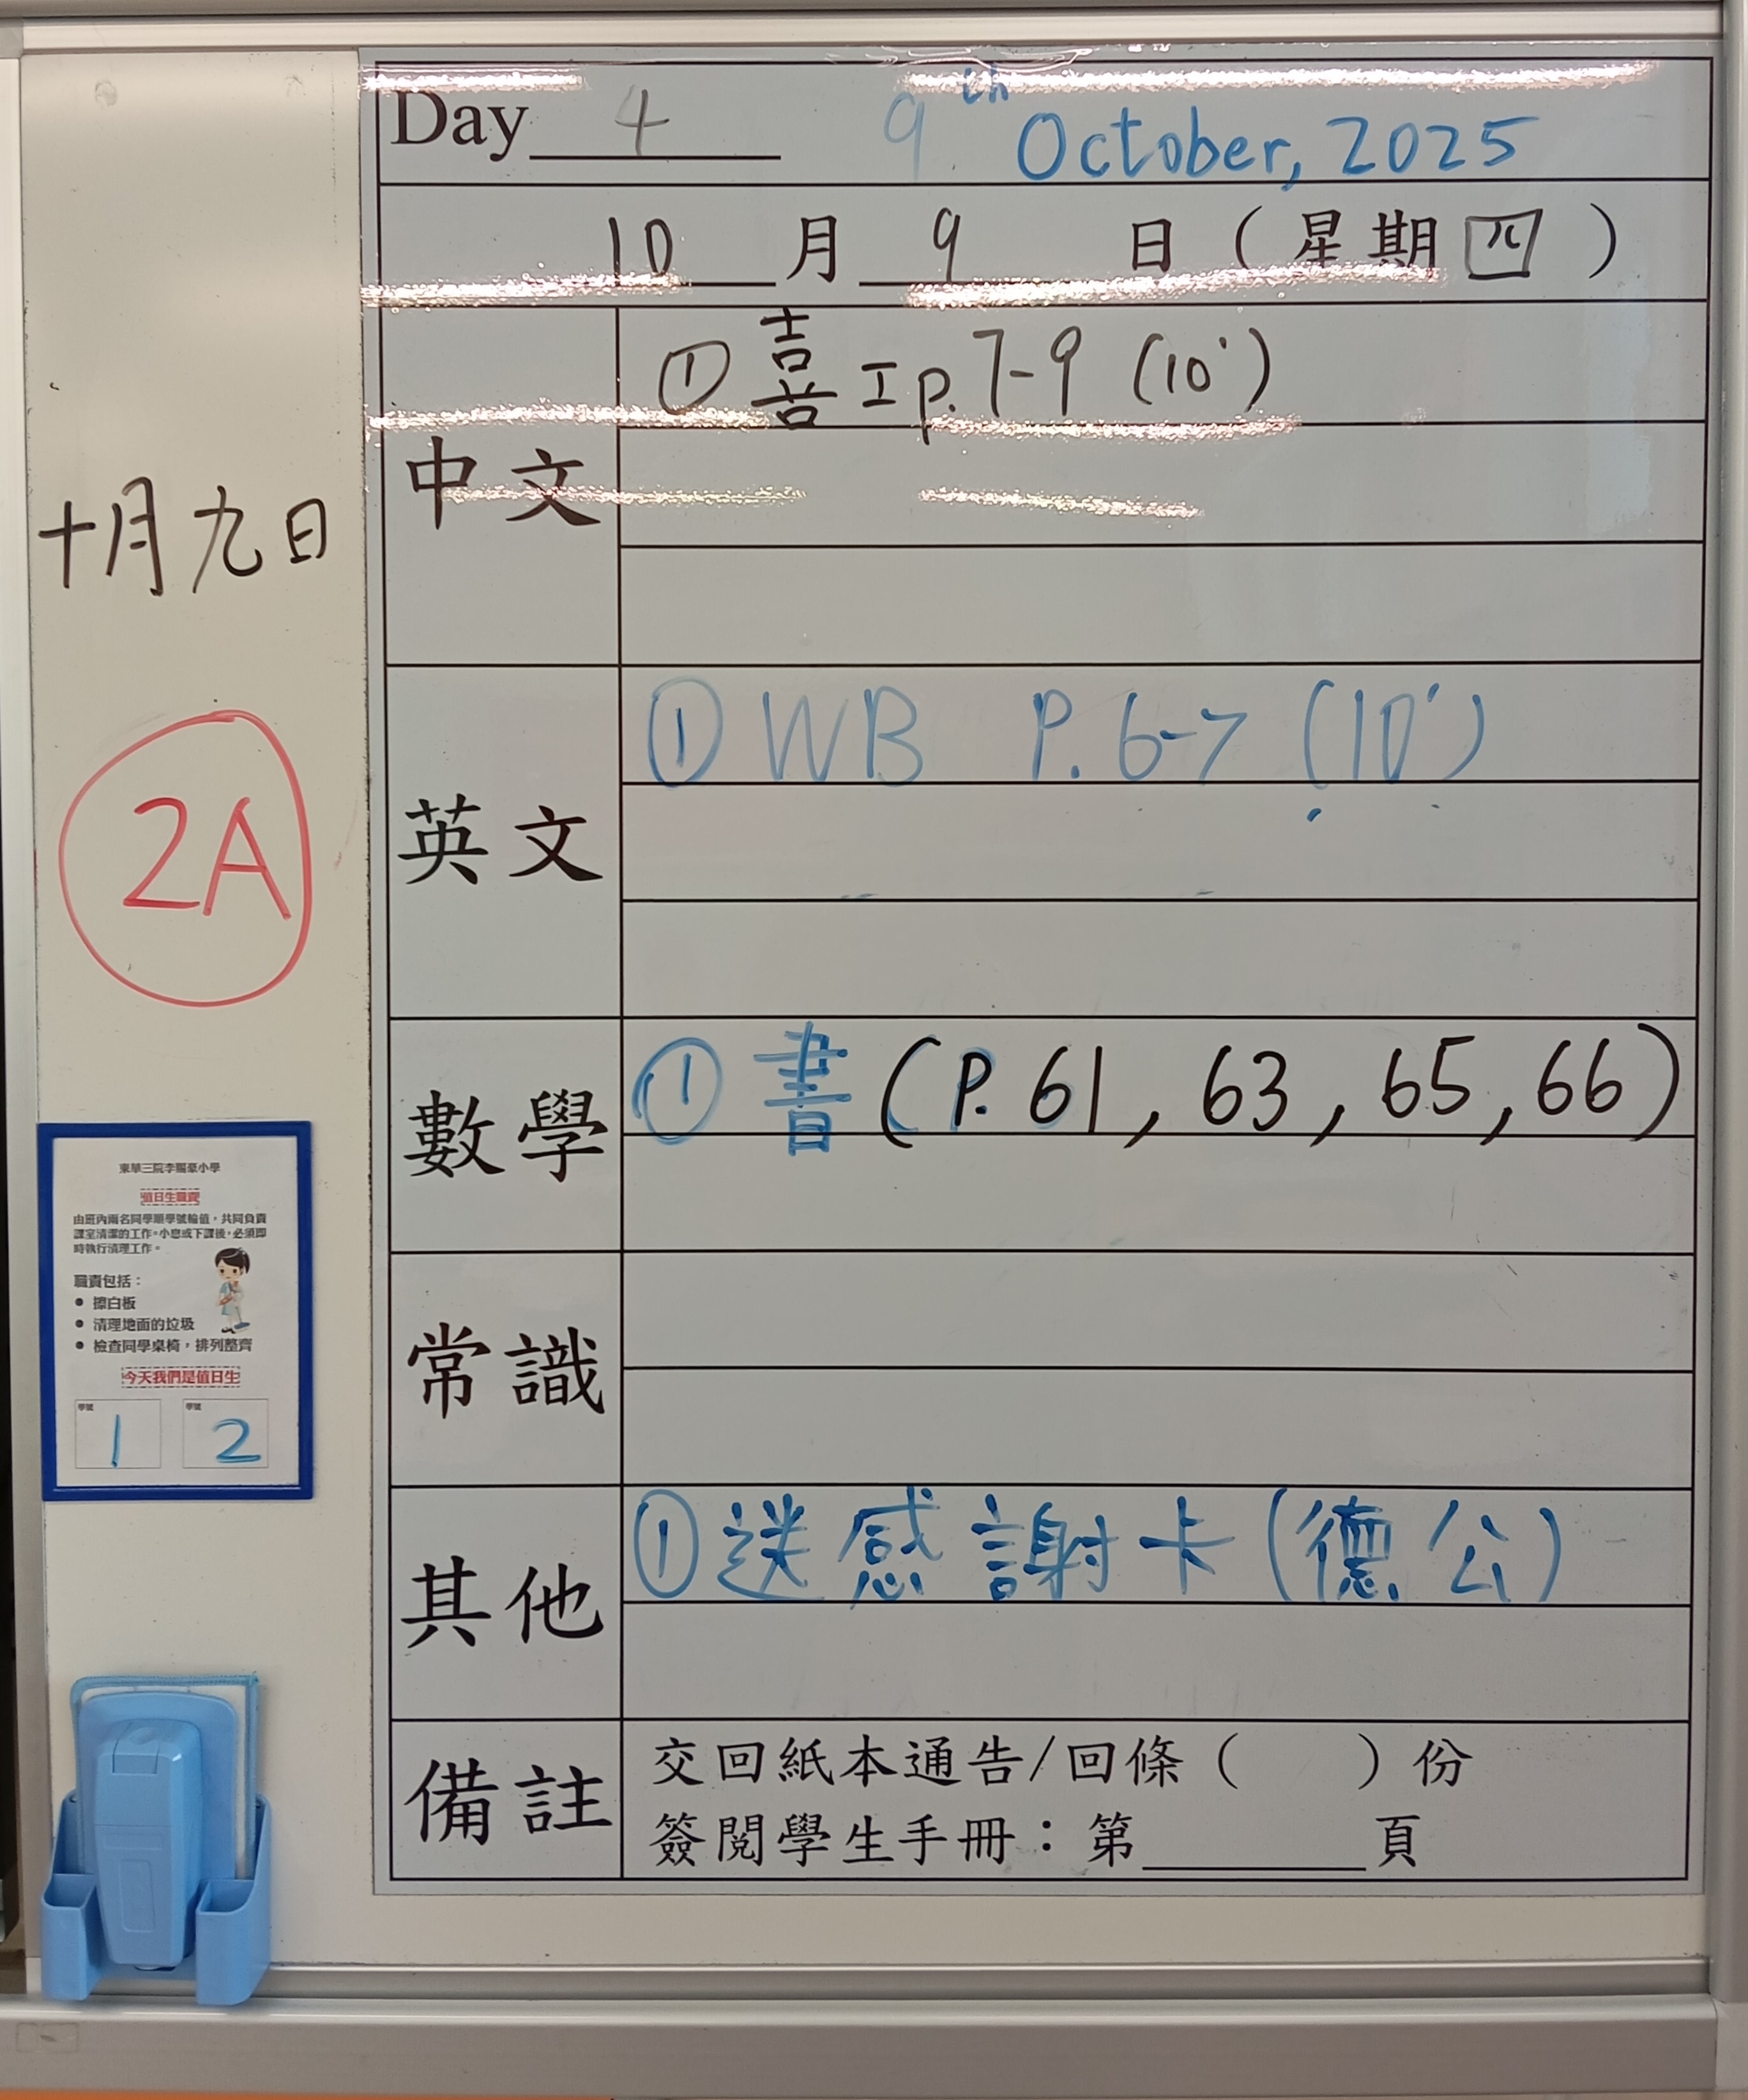 Day 4 9th October, 2025
10 月 9 日 ( 星期四 )
中文
① 喜 I p.7-9 (10')
十月九日
英文
① WB P.6-7 (10')
2A
數學
① 書 (P. 61, 63, 65, 66)
東華三院李賜豪小學
值日生職責
由班內兩名同學順學號輪值,共同負責
課室清潔的工作。小息或下課後,必須即
時執行清理工作。
職責包括:
● 擦白板
● 清理地面的垃圾
● 檢查同學桌椅,排列整齊
今天我們是值日生
學號 1 學號 2
常識
其他
① 送感謝卡 (德公)
備註
交回紙本通告/回條 ( ) 份
簽閱學生手冊:第____頁